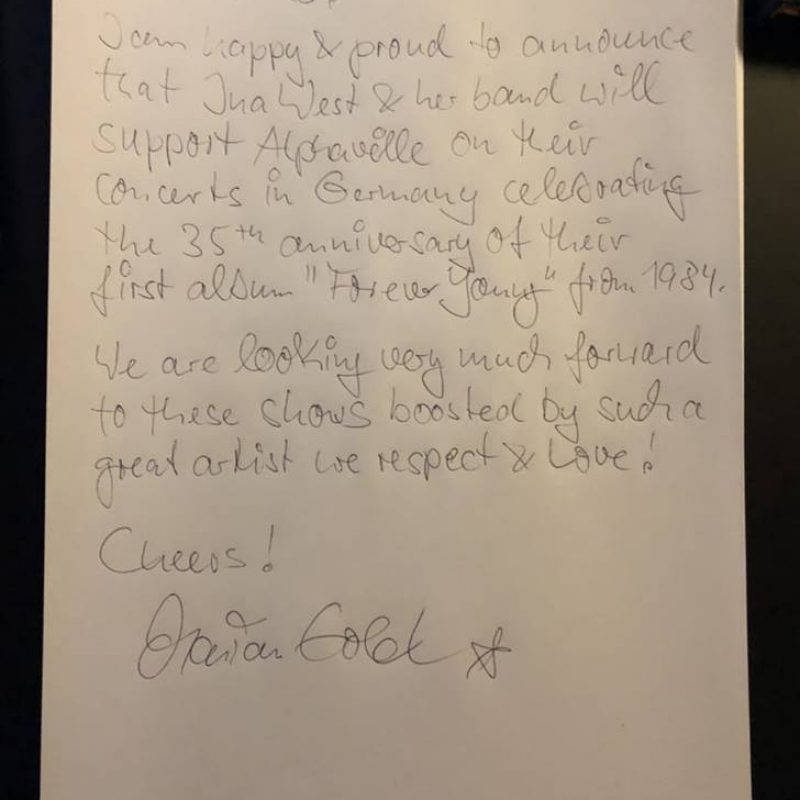 I am happy & proud to announce
that Ina West & her band will
support Alphaville on their
concerts in Germany celebrating
the 35th anniversary of their
first album "Forever Young" from 1984.
We are looking very much forward
to these shows boosted by such a
great artist we respect & love!
Cheers!
Marian Gold